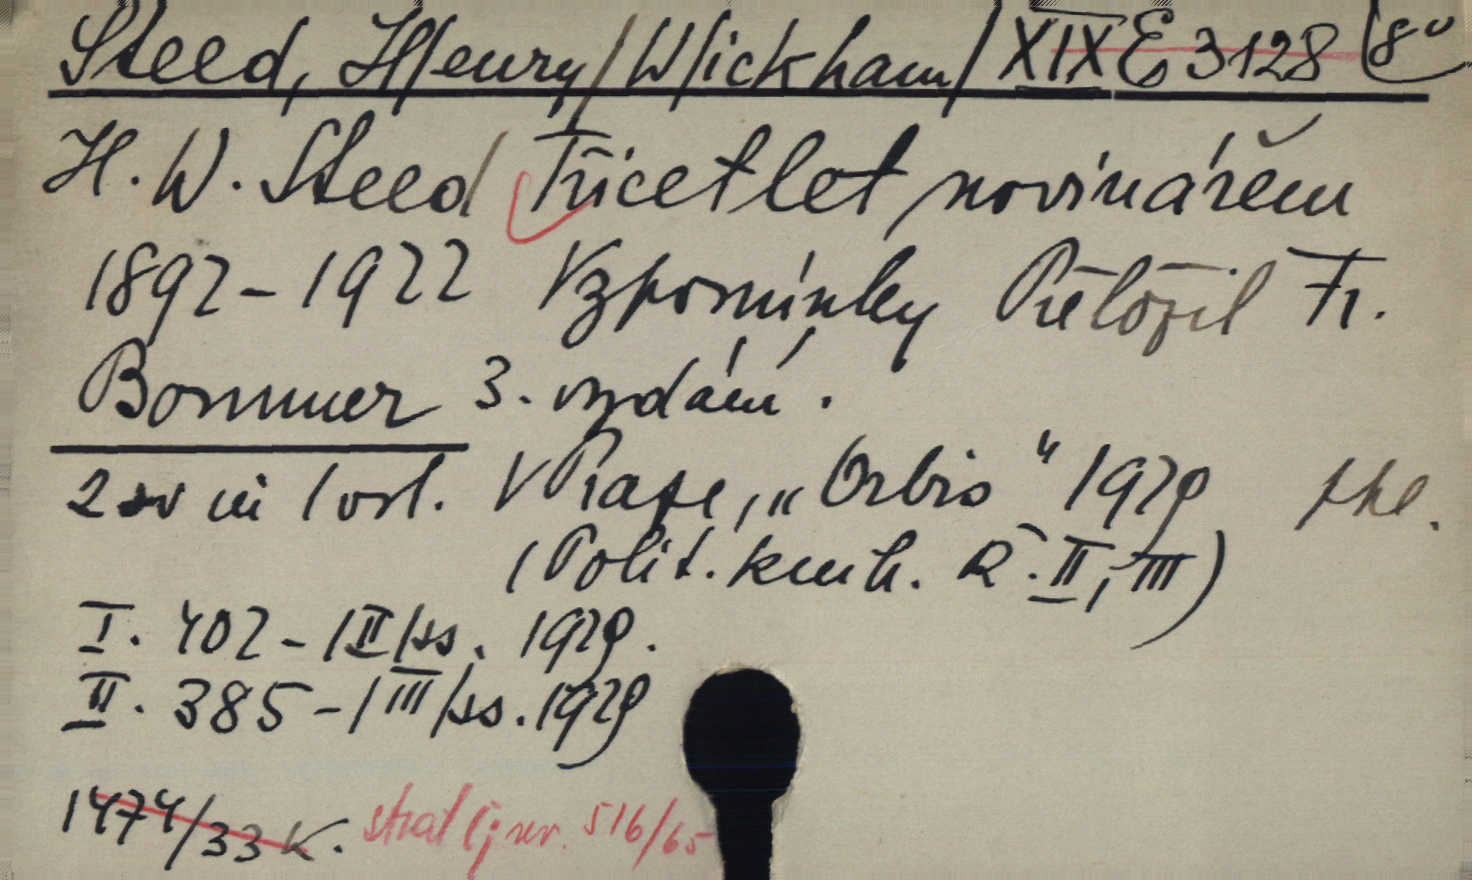 Steed, H/enry/ W/ickham/ XIX E 3128 (8°
H. W. Steed Třicet let novinářem
1892-1922 Vzpomínky Přeložil Fr.
Bommer 3. vydání.
2 sv in 1 vol. V Praze, „Orbis" 1929
(Polit. knih. Ř. II, III)
I. 402-/II/ss. 1929.
II. 385-/III/ss. 1929
1474/33 K. 516/65